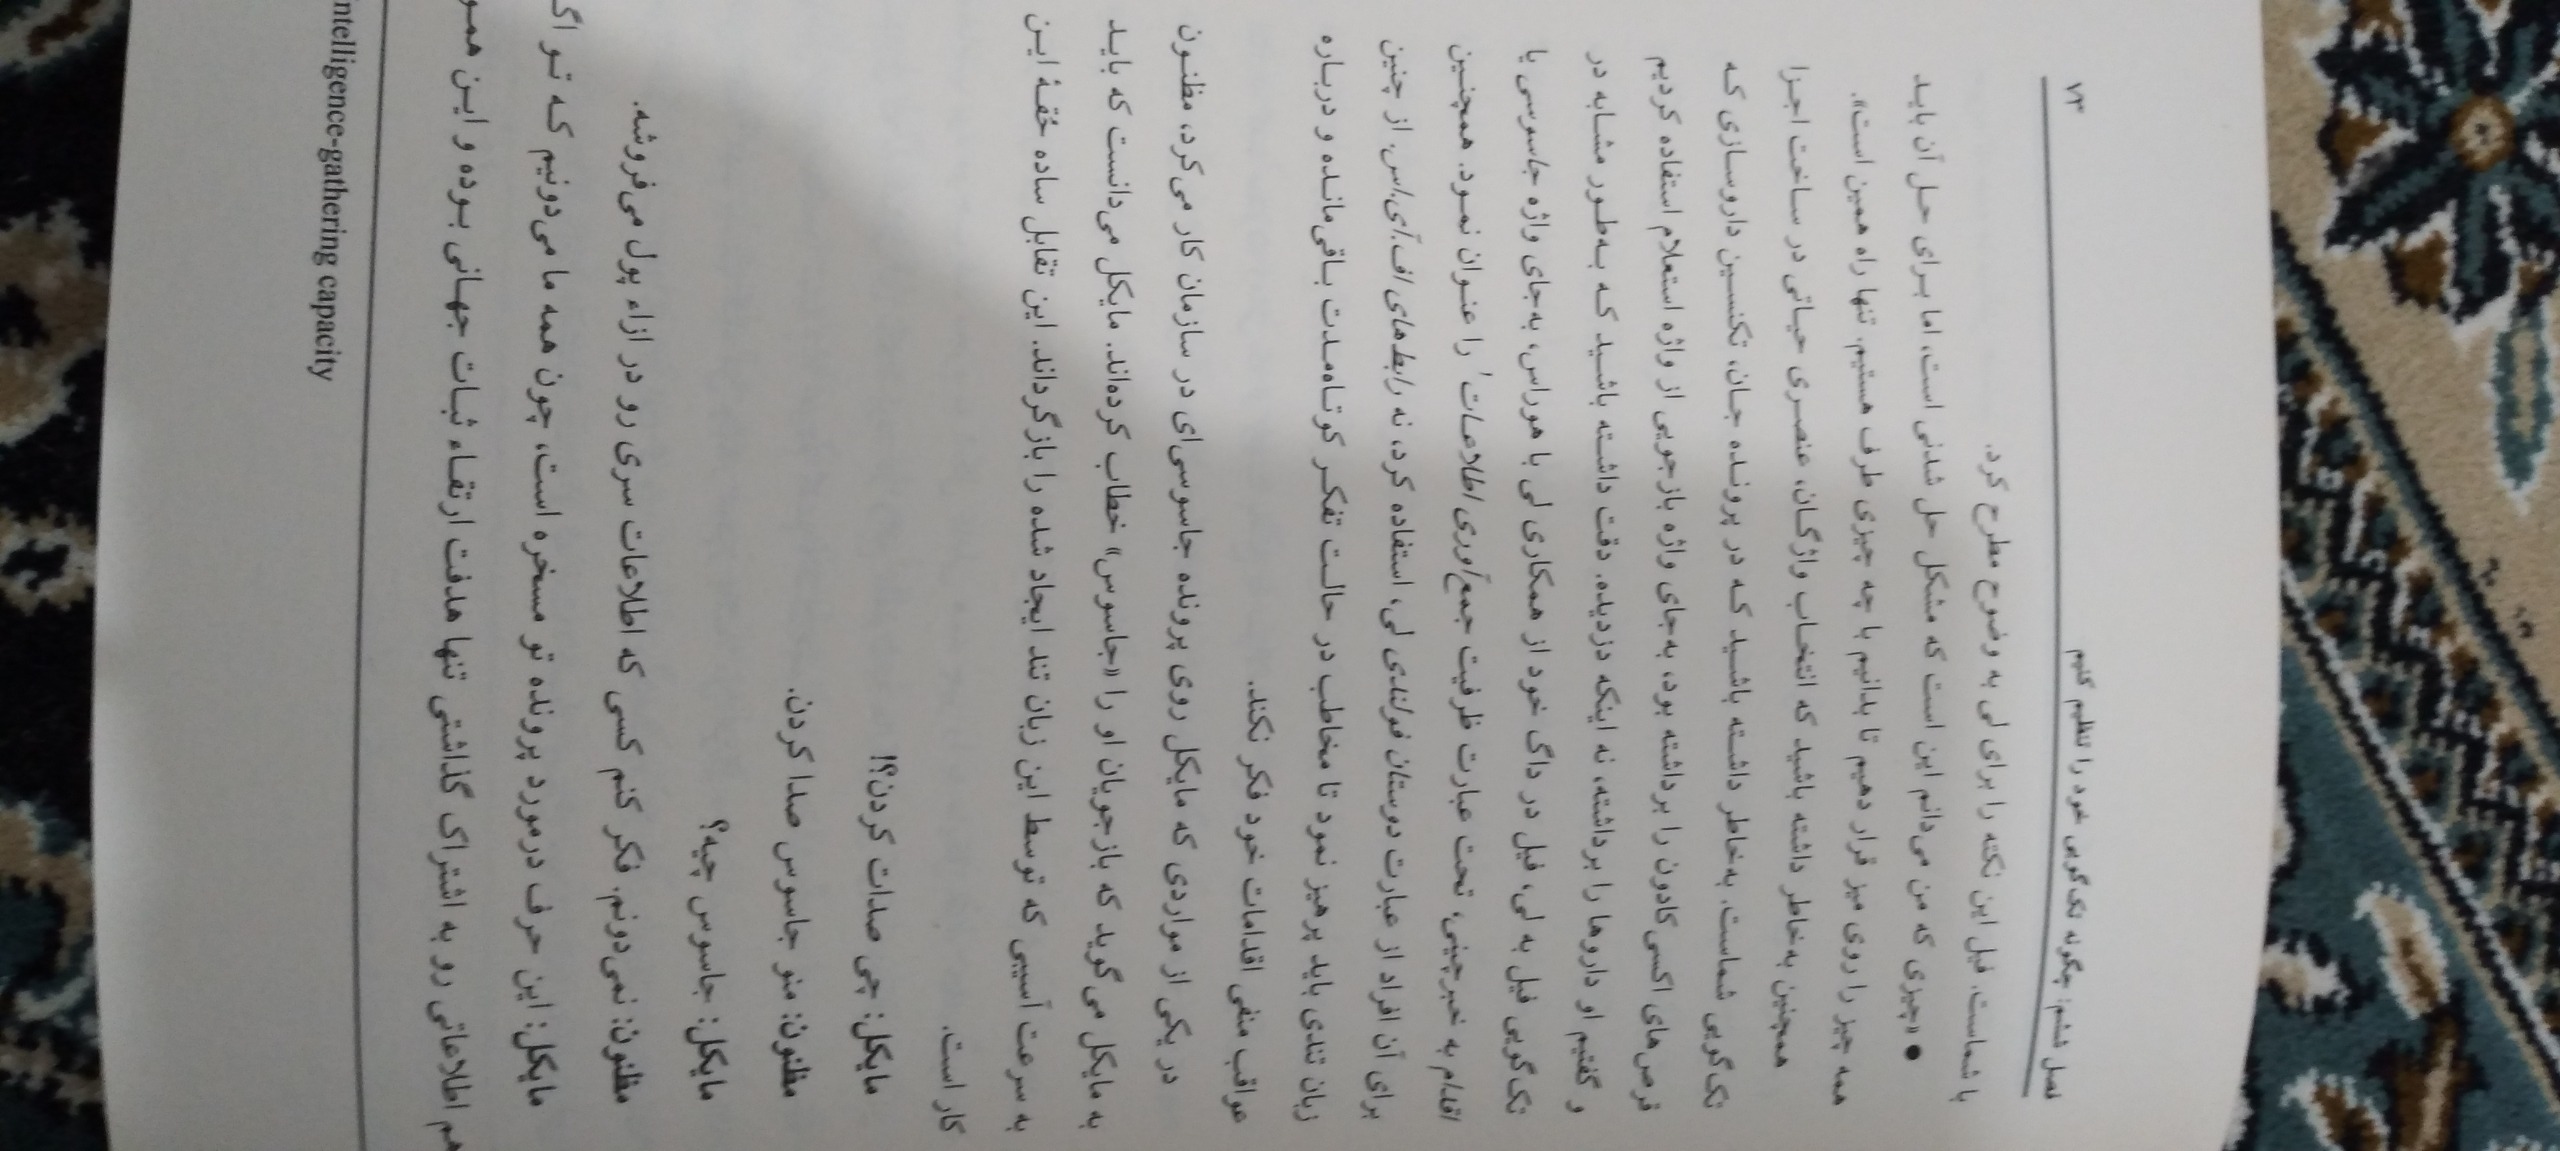 فصل ششم: چگونه تک‌گویی خود را تنظیم کنیم ۷۳
با شماست. فیل این نکته را برای لی به وضوح مطرح کرد.
● «چیزی که من می‌دانم این است که مشکل حل شدنی است، اما برای حل آن باید
همه چیز را روی میز قرار دهیم تا بدانیم با چه چیزی طرف هستیم. تنها راه همین است».
همچنین به‌خاطر داشته باشید که انتخاب واژگان، عنصری حیاتی در ساخت اجرا
تک‌گویی شماست. به‌خاطر داشته باشید که در پرونده جان، تکنسین داروسازی که
قرص‌های اکسی‌کادون را برداشته بود، به‌جای واژه بازجویی از واژه استعلام استفاده کردیم
و گفتیم او داروها را برداشته، نه اینکه دزدیده. دقت داشته باشید که به‌طور مشابه در
تک‌گویی فیل به لی، فیل در داگ خود از همکاری لی با هوراس، به‌جای واژه جاسوسی یا
اقدام به خبرچینی، تحت عبارت ظرفیت جمع‌آوری اطلاعات۱ را عنوان نمود. همچنین
برای آن افراد از عبارت دوستان فولندی لی، استفاده کرد، نه رابط‌های اف.آی.اس. از چنین
زبان تندی باید پرهیز نمود تا مخاطب در حالت تفکر کوتاه‌مدت باقی‌مانده و درباره
عواقب منفی اقدامات خود فکر نکند.
در یکی از مواردی که مایکل روی پرونده جاسوسی‌ای در سازمان کار می‌کرد، مظنون
به مایکل می‌گوید که بازجویان او را «جاسوس» خطاب کرده‌اند. مایکل می‌دانست که باید
به سرعت آسیبی که توسط این زبان تند ایجاد شده را بازگرداند. این تقابل ساده حُقهٔ این
کار است.
مایکل: چی صدات کردن؟!
مظنون: منو جاسوس صدا کردن.
مایکل: جاسوس چیه؟
مظنون: نمی‌دونم. فکر کنم کسی که اطلاعات سری رو در ازاء پول می‌فروشه.
مایکل: این حرف درمورد پرونده تو مسخره است، چون همه ما می‌دونیم که تو
هم اطلاعاتی رو به اشتراک گذاشتی تنها هدفت ارتقاء ثبات جهانی بوده و این
ntelligence-gathering capacity